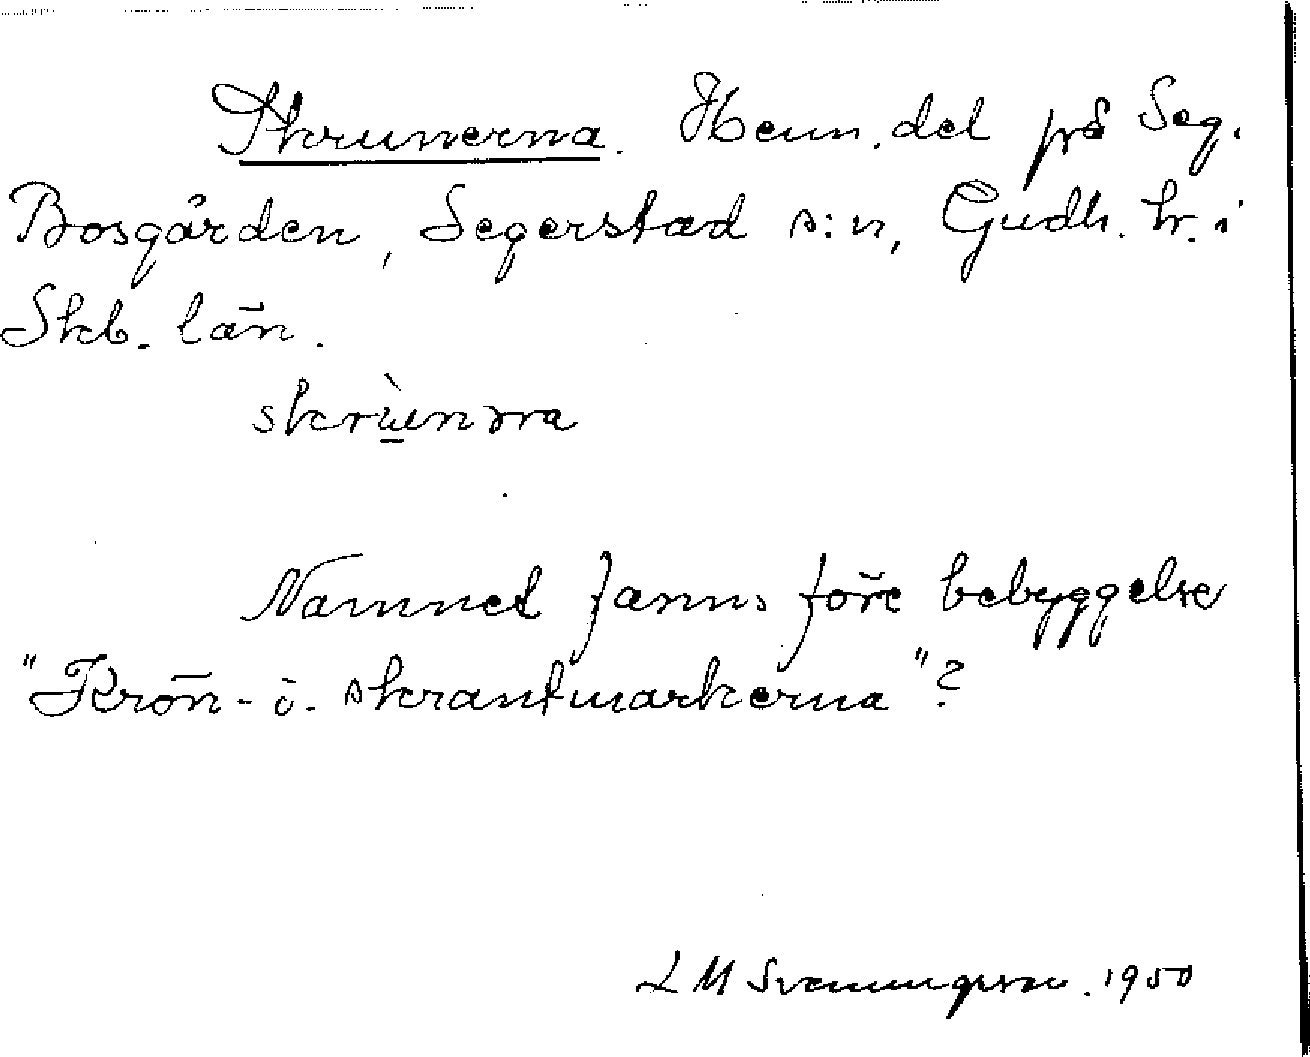 Skrunerna. Hem.del på Seg.
Bosgården, Segerstad s:n, Gudh. hr. i
Skb. län.
skrùnnra
Namnet fanns före bebyggelse
"Krön- o. skrantmarkerna"?
L M Svenungsson. 1950